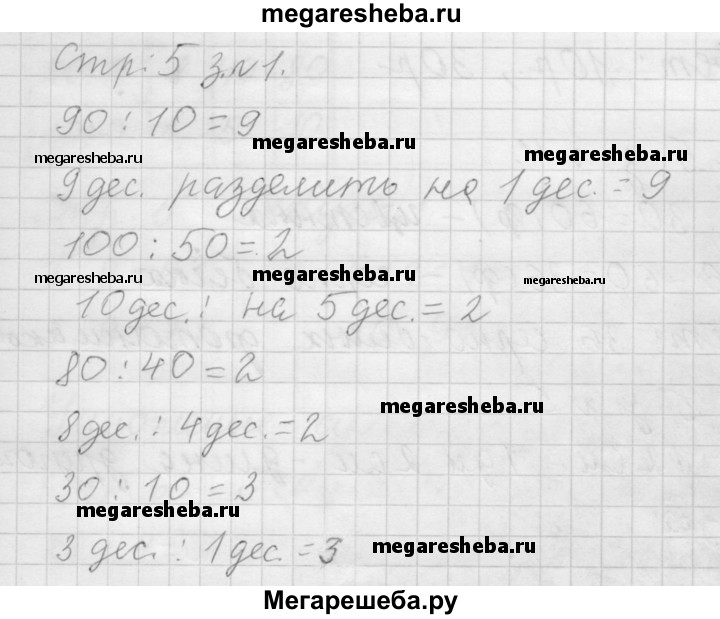 megaresheba.ru
Стр: 5 з.№1.
90 : 10 = 9
megaresheba.ru
megaresheba.ru
megaresheba.ru
9 дес. разделить на 1 дес. = 9
100 : 50 = 2
megaresheba.ru
megaresheba.ru
megaresheba.ru
10 дес. : на 5 дес. = 2
80 : 40 = 2
megaresheba.ru
8 дес. : 4 дес. = 2
30 : 10 = 3
megaresheba.ru
3 дес. : 1 дес. = 3
megaresheba.ru
Мегарешеба.ру